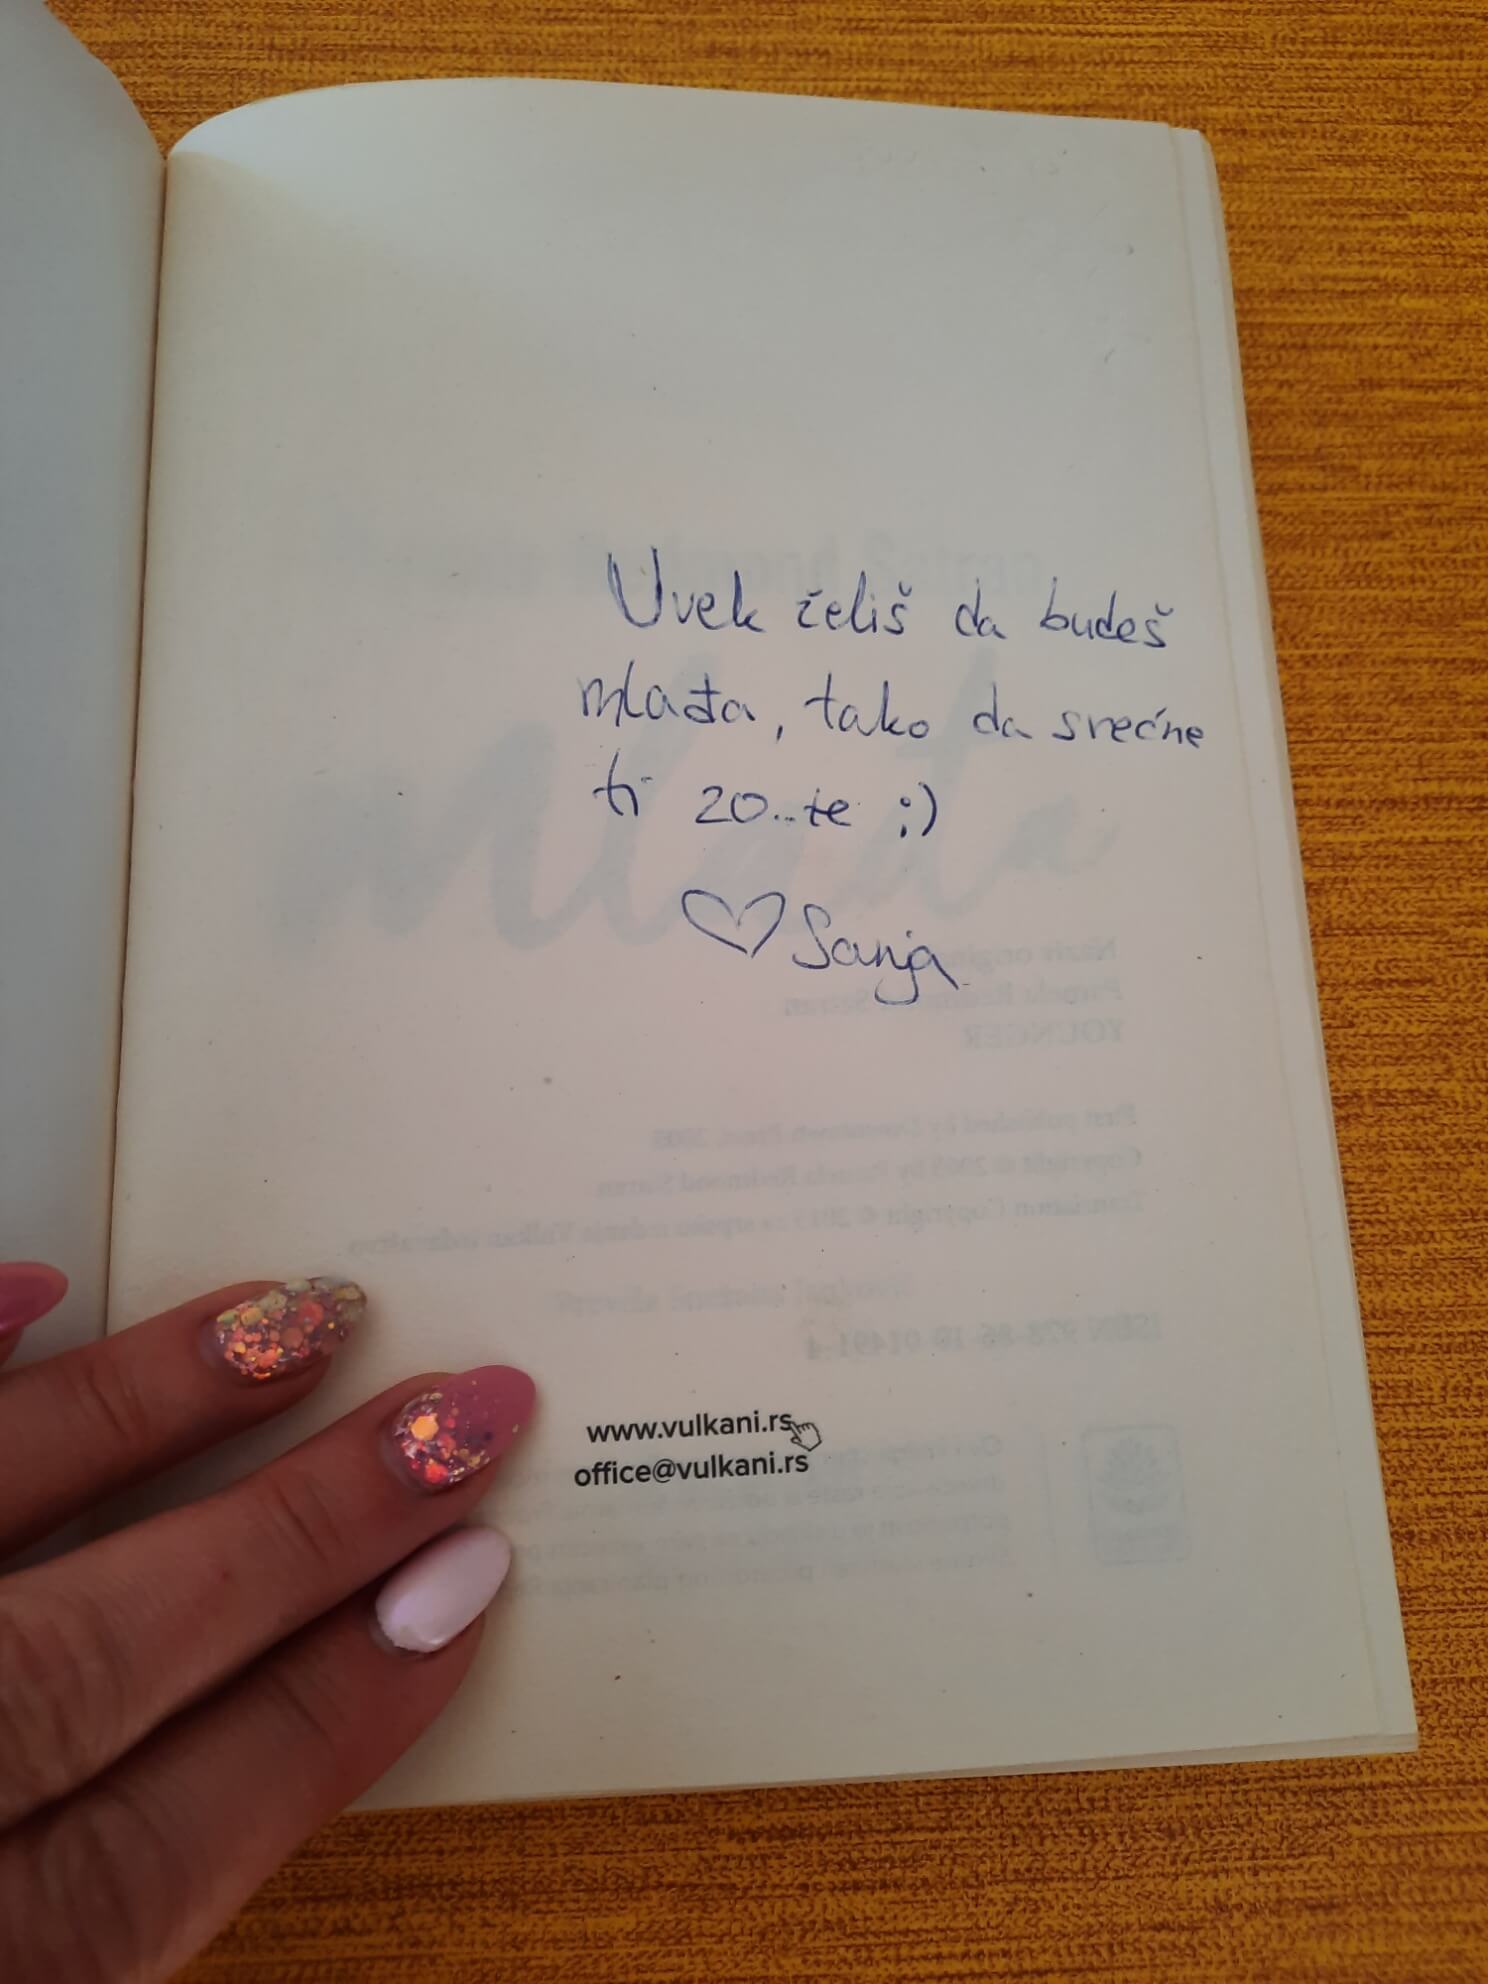 Uvek želiš da budeš
mlađa, tako da srećne
ti 20...te ;)
♡ Sanja
www.vulkani.rs
office@vulkani.rs